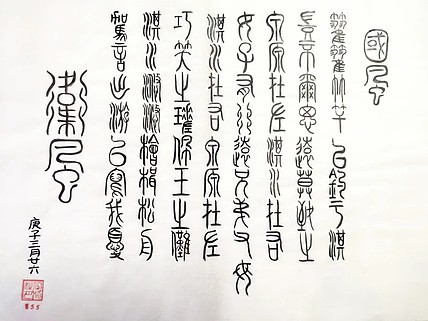 國風
籊籊竹竿以釣于淇
豈不爾思遠莫致之
泉源在左淇水在右
女子有行遠兄弟父母
淇水在右泉源在左
巧笑之瑳佩玉之儺
淇水滺滺檜楫松舟
駕言出游以寫我憂
衛風
庚子三月廿六